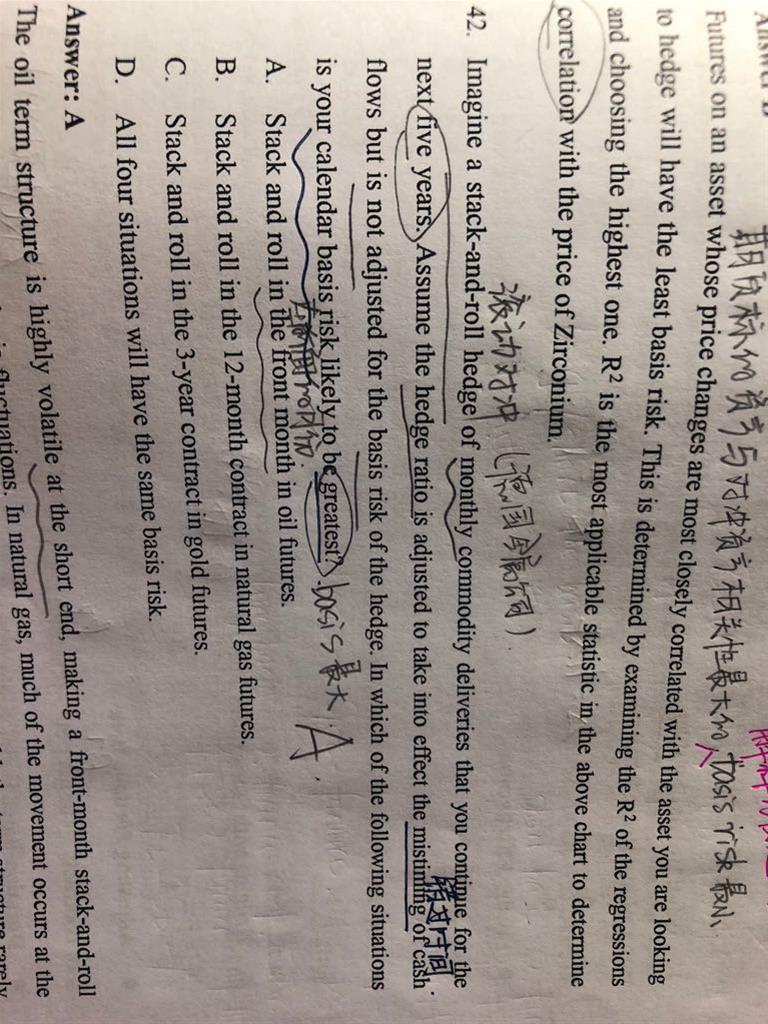 Answer B
期货标的资产与对冲资产相关性最大的, basis risk 最小
Futures on an asset whose price changes are most closely correlated with the asset you are looking
to hedge will have the least basis risk. This is determined by examining the R² of the regressions
and choosing the highest one. R² is the most applicable statistic in the above chart to determine
correlation with the price of Zirconium.
滚动对冲（德国金属公司）
42. Imagine a stack-and-roll hedge of monthly commodity deliveries that you continue for the
错过时间
next five years. Assume the hedge ratio is adjusted to take into effect the mistiming of cash
flows but is not adjusted for the basis risk of the hedge. In which of the following situations
is your calendar basis risk likely to be greatest? basis 最大 A.
A. Stack and roll in the front month in oil futures.
B. Stack and roll in the 12-month contract in natural gas futures.
C. Stack and roll in the 3-year contract in gold futures.
D. All four situations will have the same basis risk.
Answer: A
The oil term structure is highly volatile at the short end, making a front-month stack-and-roll
fluctuations. In natural gas, much of the movement occurs at the
structure rarely